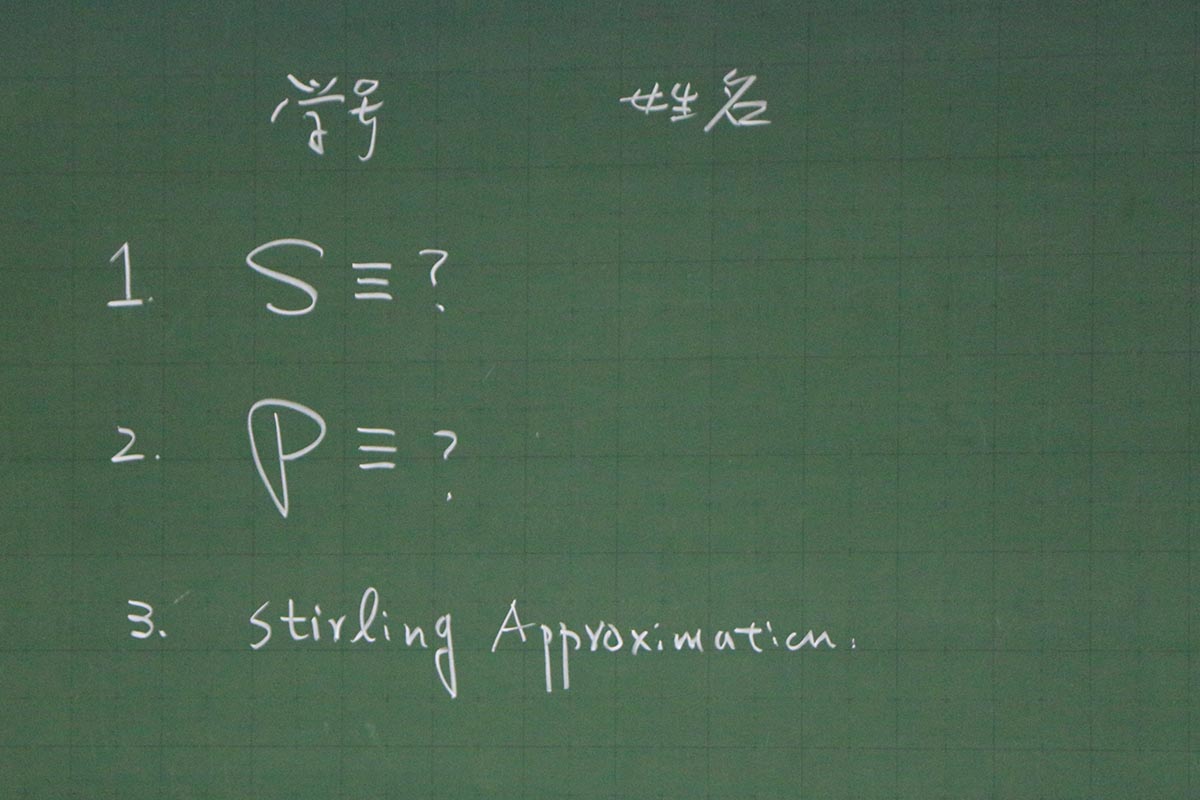 学号 姓名
1. S ≡ ?
2. P ≡ ?
3. Stirling Approximation.